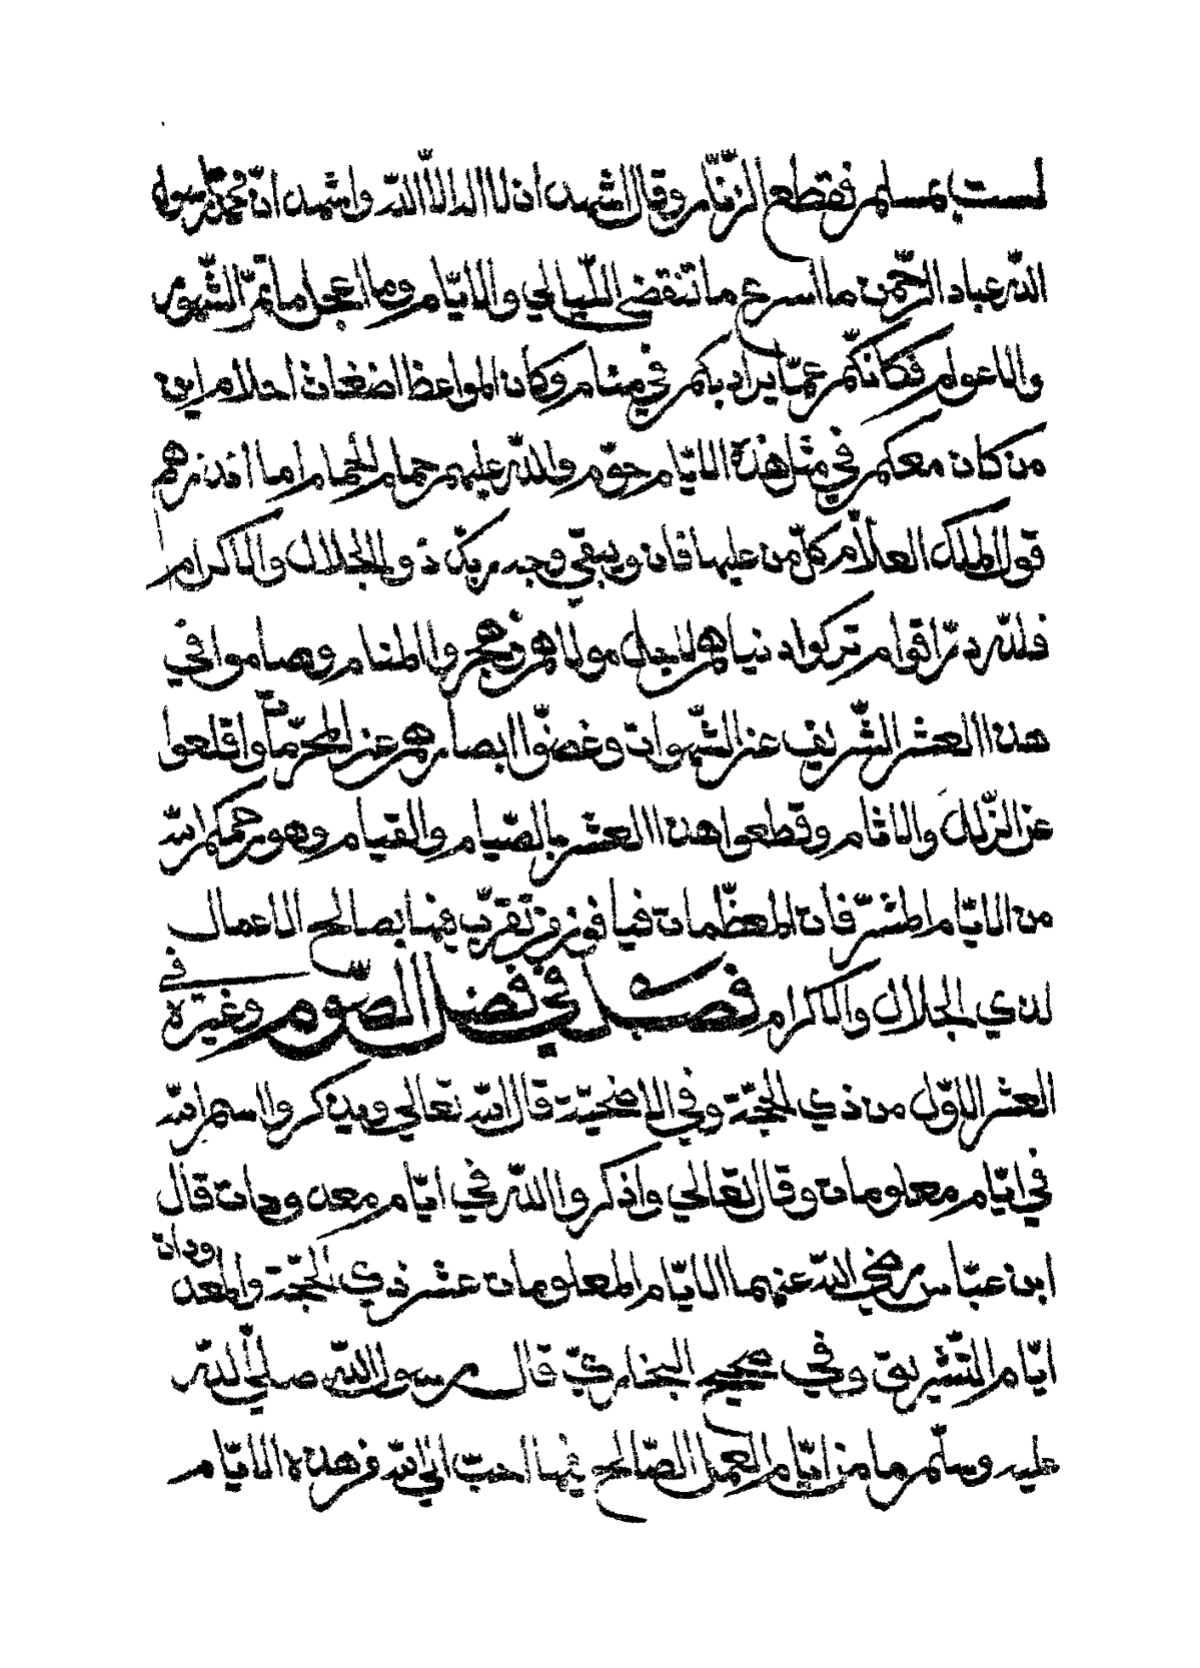 لست بمسلم فقطع الزّنّار وقال اشهد ان لا اله الاّ اللّه واشهد انّ محمّدا رسول
اللّه عباد الرّحمن ما اسرع ما تنقضي اللّيالي والايّام وما اعجل ما تمرّ الشّهور
والاعوام فكانّكم عمّا يراد بكم في منام وكان المواعظ اضغاث احلام اين
من كان معكم في مثل هذه الايّام حوّم واللّه عليهم حمام الحمام اما انذرهم
قول الملك العلاّم كلّ من عليها فان ويبقي وجه ربّك ذو الجلال والاكرام
فللّه درّ اقوام تركوا دنياهم لاجل مولاهم وهجروا المنام وصاموا في
هذا العشر الشّريف عن الشّهوات وغضّوا ابصارهم عن المحرّمات واقلعوا
عن الزّلل والاثام وقطعوا هذا العشر بالصّيام والقيام وهو رحمكم اللّه
من الايّام المشرّفات المعظّمات فيا فوز من تقرّب فيها بصالح الاعمال
لذي الجلال والاكرام فصل في فضل الصّوم وغيره في
العشر الاوّل من ذي الحجّة وفي الاضحيّة قال اللّه تعالي ويذكروا اسم اللّه
في ايّام معلومات وقال تعالي واذكروا اللّه في ايّام معدودات قال
ابن عبّاس رضي اللّه عنهما الايّام المعلومات عشر ذي الحجّة والمعدودات
ايّام التّشريق وفي صحيح البخاريّ قال رسول اللّه صلّي اللّه
عليه وسلّم ما من ايّام العمل الصّالح فيها احبّ الي اللّه من هذه الايّام